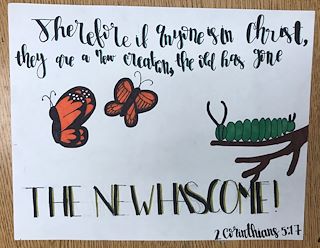 Therefore if Anyone is in Christ,
they are a new creation, the old has gone
THE NEW HAS COME!
2 Corinthians 5:17